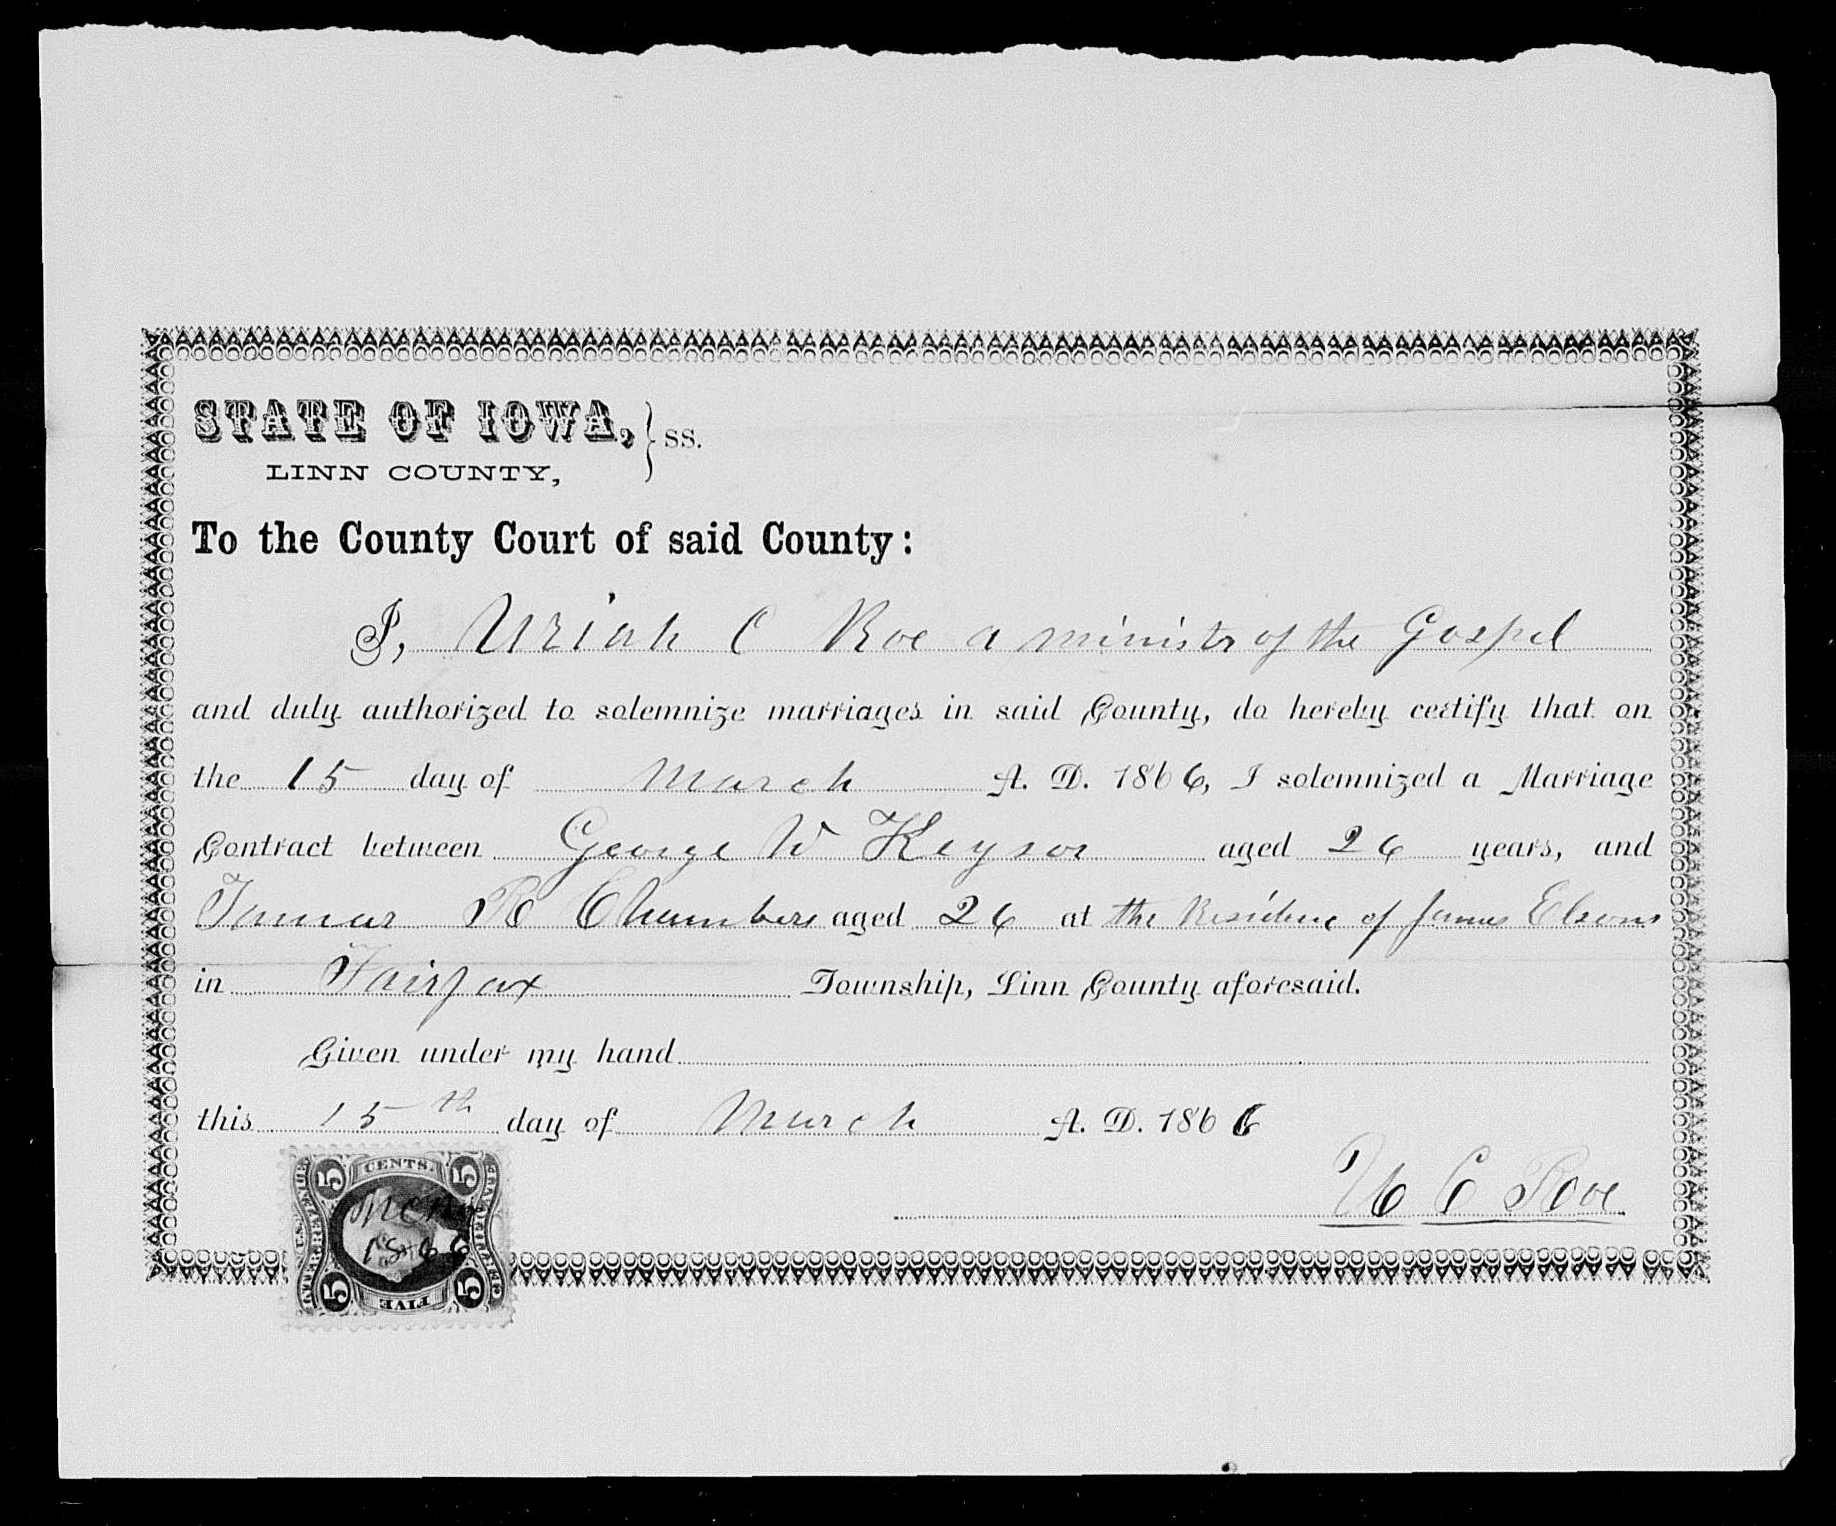 STATE OF IOWA, } SS.
LINN COUNTY,
To the County Court of said County:
I, Uriah C Roe a ministr of the Gospel
and duly authorized to solemnize marriages in said County, do hereby certify that on
the 15 day of March A. D. 1866, I solemnized a Marriage
Contract between George W Keysor aged 26 years, and
Tamar R Chambers aged 26 at the Residence of James Elsons
in Fairfax Township, Linn County aforesaid.
Given under my hand
this 15th day of March A. D. 1866
U C Roe
5 CENTS. 5
U.S. INTER. REV.
15 66
5 FIVE 5